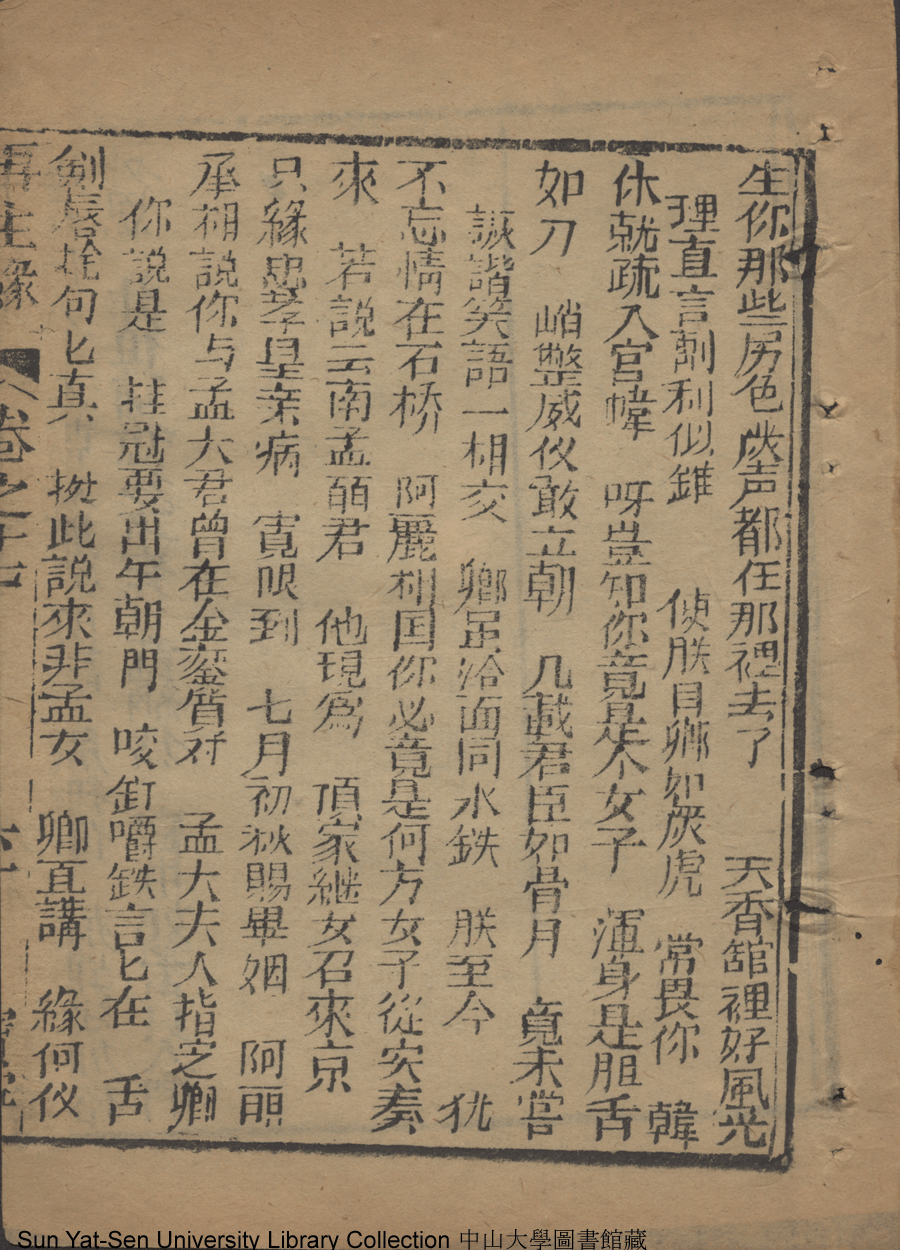 生你那些房色歲声都在那裡去了 天香舘裡好風光
理直言剳利似錐 偵朕目卿如炭虎 常畏你 韓
休就疏入宮幃 呀豈知你竟是个女子 渾身是胆舌
如刀 峭整威仪敢立朝 几載君臣如骨月 竟未嘗
詼諧笑語一相交 卿足洽面同水鉄 朕至今 犹
不忘情在石桥 阿麗相国你必竟是何方女子從实奏
來 若説云南孟䴡君 他現爲 項家継女召來京
只緣忠孝皇亲病 寛限到 七月初秋賜畢姻 阿
承相說你与孟大君曾在金鑾質对 孟大夫人指定卿
你説是 挂冠要出午朝門 咬釘嚼鉄言匕在 舌
剣唇 句匕真 㨿此說來非孟女 卿直講 緣何仪
再生緣 卷之十
Sun Yat-Sen University Library Collection 中山大學圖書館藏